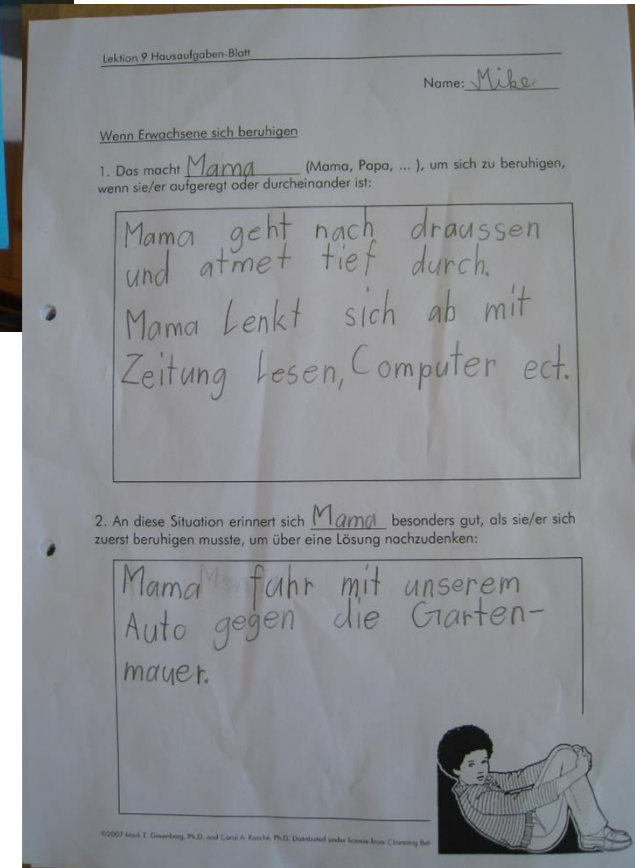 Lektion 9 Hausaufgaben-Blatt
Name: Mike
Wenn Erwachsene sich beruhigen
1. Das macht Mama (Mama, Papa, ... ), um sich zu beruhigen,
wenn sie/er aufgeregt oder durcheinander ist:
Mama geht nach draussen
und atmet tief durch.
Mama Lenkt sich ab mit
Zeitung Lesen, Computer ect.
2. An diese Situation erinnert sich Mama besonders gut, als sie/er sich
zuerst beruhigen musste, um über eine Lösung nachzudenken:
Mama fuhr mit unserem
Auto gegen die Garten-
mauer.
©2007 Mark T. Greenberg, Ph.D. and Carol A. Kusché, Ph.D. Distributed under license from Channing Bet